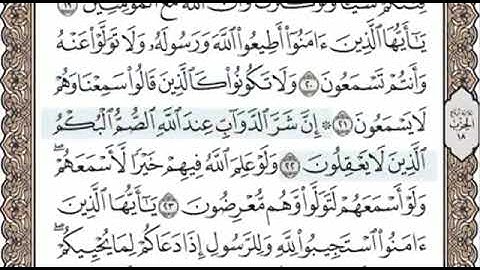 فِئَتُكُمْ شَيْـًٔا وَلَوْ كَثُرَتْ وَأَنَّ ٱللَّهَ مَعَ ٱلْمُؤْمِنِينَ ١٩
يَٰٓأَيُّهَا ٱلَّذِينَ ءَامَنُوٓا۟ أَطِيعُوا۟ ٱللَّهَ وَرَسُولَهُۥ وَلَا تَوَلَّوْا۟ عَنْهُ
وَأَنتُمْ تَسْمَعُونَ ٢٠ وَلَا تَكُونُوا۟ كَٱلَّذِينَ قَالُوا۟ سَمِعْنَا وَهُمْ
لَا يَسْمَعُونَ ٢١ ۞ إِنَّ شَرَّ ٱلدَّوَآبِّ عِندَ ٱللَّهِ ٱلصُّمُّ ٱلْبُكْمُ
ٱلَّذِينَ لَا يَعْقِلُونَ ٢٢ وَلَوْ عَلِمَ ٱللَّهُ فِيهِمْ خَيْرًا لَّأَسْمَعَهُمْ ۖ
وَلَوْ أَسْمَعَهُمْ لَتَوَلَّوا۟ وَّهُم مُّعْرِضُونَ ٢٣ يَٰٓأَيُّهَا ٱلَّذِينَ
ءَامَنُوا۟ ٱسْتَجِيبُوا۟ لِلَّهِ وَلِلرَّسُولِ إِذَا دَعَاكُمْ لِمَا يُحْيِيكُمْ ۖ
الحزب
١٨